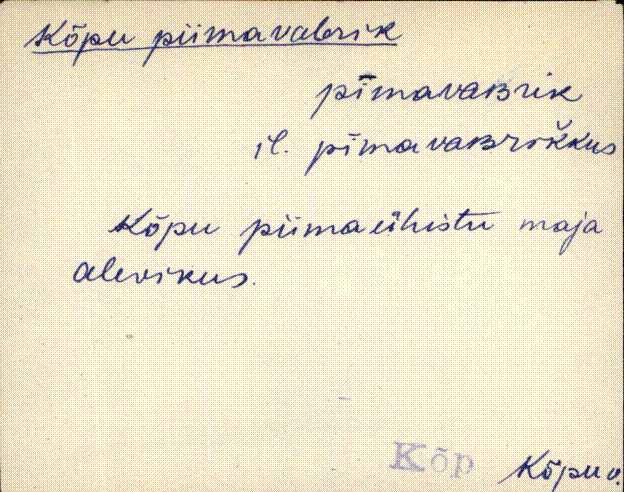 Kõpu piimavabrik
pīmavaʙrik
il. pīmavaʙrik̆kus
Kõpu piimaühistu maja
alevikus.
Kõp
Kõpu v.